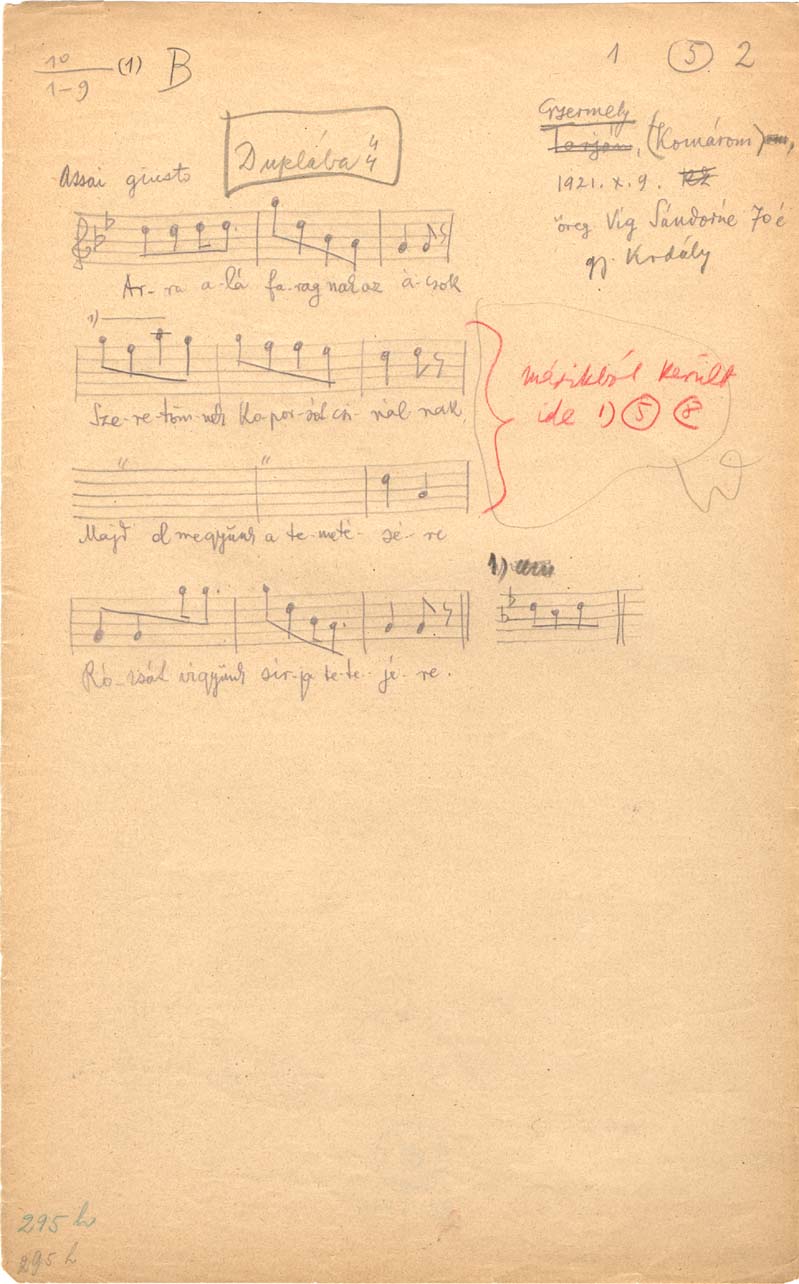 10
1-9
(1) B
1 5 2
Gyermely
Tarján, (Komárom),
1921. X. 9.
öreg Víg Sándorné 70 é
gy. Kodály
Duplába 4 4
Assai giusto
Ar-ra a-lá fa-rag nak az á-csok
1)
Sze-re-tőm-nek ko-por-sót csi-nál-nak,
másikból került
ide 1) 5 8
" "
Majd el megyünk a te-meté-sé-re
1)
Ró-zsát vigyünk sír-ja te-te-jé-re.
295 h
295 h